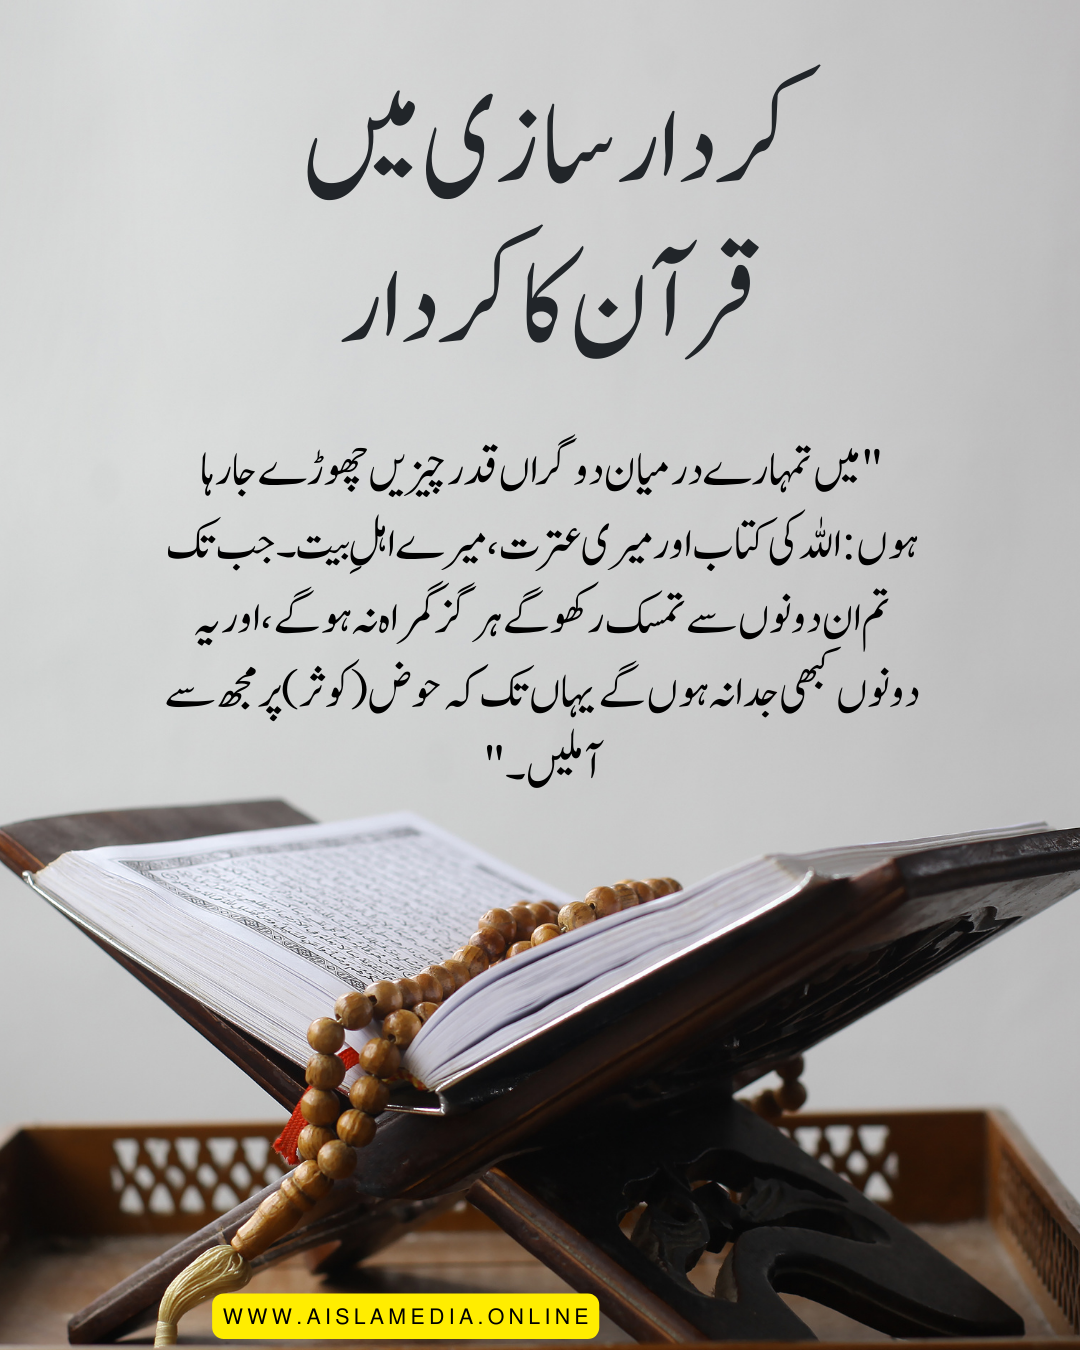 کردار سازی میں
قرآن کا کردار
"میں تمہارے درمیان دو گراں قدر چیزیں چھوڑے جا رہا
ہوں: اللہ کی کتاب اور میری عترت، میرے اہلِ بیت۔ جب تک
تم ان دونوں سے تمسک رکھو گے ہرگز گمراہ نہ ہو گے، اور یہ
دونوں کبھی جدا نہ ہوں گے یہاں تک کہ حوض (کوثر) پر مجھ سے
آ ملیں۔"
WWW.AISLAMEDIA.ONLINE